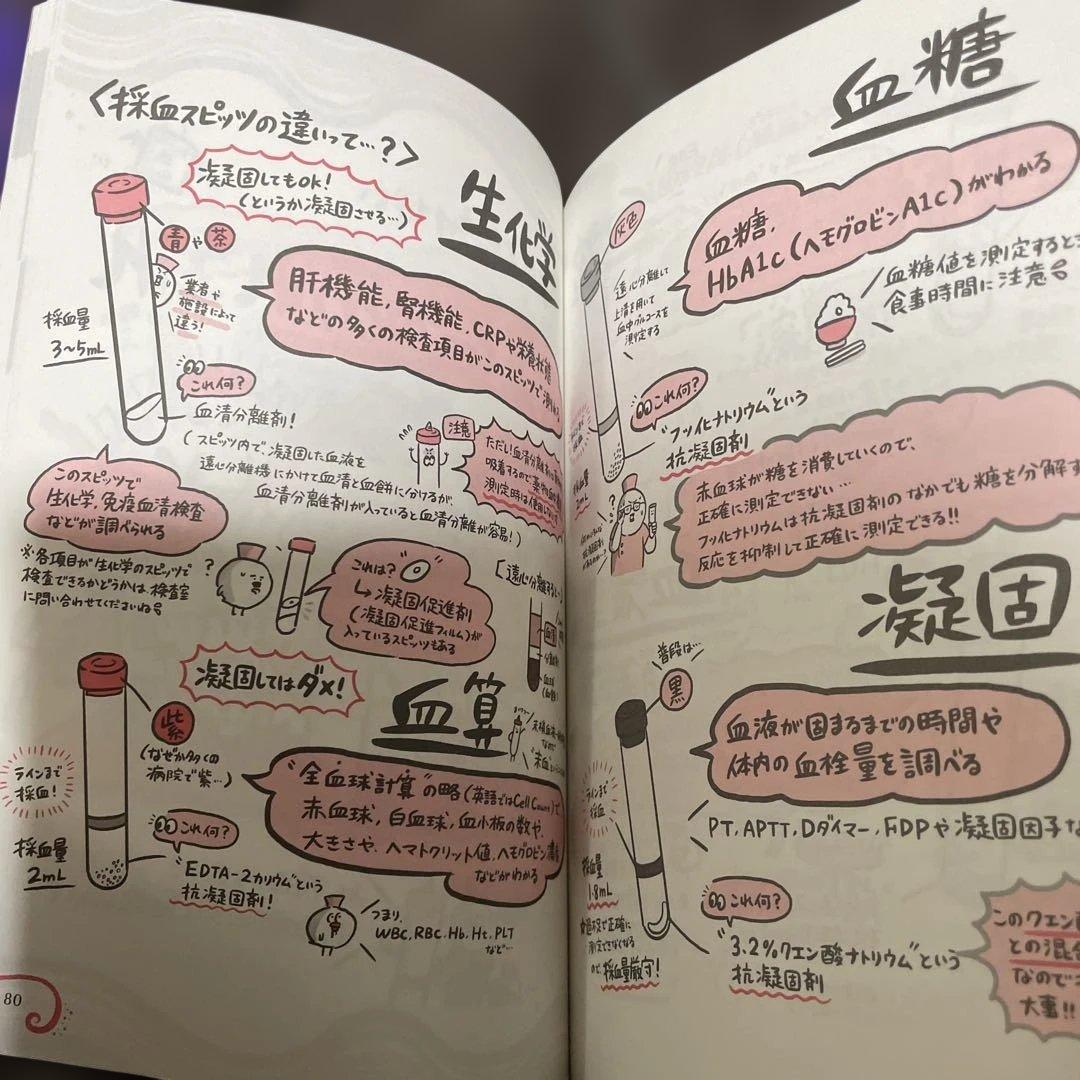 〈採血スピッツの違いって…?〉
凝固してもOK!
(というか凝固させる…)
生化学
青や茶
業者や
施設によって
違う!
採血量
3~5mL
肝機能,腎機能,CRPや栄養状態
などの多くの検査項目がこのスピッツで測れる
これ何?
血清分離剤!
(スピッツ内で、凝固した血液を
遠心分離機にかけて血清と血餅に分けるが、
血清分離剤が入っていると血清分離が容易!)
注意
ただし!血清分離剤が
吸着するので薬物血中
測定時は使用
このスピッツで
生化学,免疫血清検査
などが調べられる
※各項目が生化学のスピッツで
検査できるかどうかは、検査室
に問い合わせてくださいね
?
これは?
↳凝固促進剤
(凝固促進フィルム)が
入っているスピッツもある
[遠心分離すると…
凝固してはダメ!
血算
紫
(なぜか多くの
病院で紫…)
ラインまで
採血!
採血量
2mL
これ何?
EDTA-2カリウムという
抗凝固剤!
"全血球計算"の略(英語ではCell Count)で
赤血球,白血球,血小板の数や、
大きさや、ヘマトクリット値,ヘモグロビン濃度
などがわかる
つまり、
WBC,RBC,Hb,Ht,PLT
など…
80
血糖
灰色
遠心分離して
上清を用いて
血中グルコースを
測定する
血糖,
HbA1c(ヘモグロビンA1c)がわかる
血糖値を測定するとき
食事時間に注意
これ何?
"フッ化ナトリウム"という
抗凝固剤
採血量
2mL
赤血球が糖を消費していくので、
正確に測定できない…
フッ化ナトリウムは抗凝固剤のなかでも糖を分解す
反応を抑制して正確に測定できる!!
凝固
普段は…
黒
血液が固まるまでの時間や
体内の血栓量を調べる
PT,APTT,Dダイマー,FDPや凝固因子な
ラインまで
採血
採血量
1.8mL
過不足で正確に
測定できなくなる
ので、採血量厳守!
これ何?
"3.2%クエン酸ナトリウム"という
抗凝固剤
このクエン酸
との混合
なので
大事!!